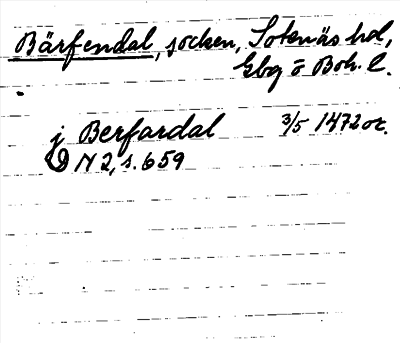 Bärfendal, socken, Sotenäs hd,
Gbg o Boh. l.
j Berfardal 3/5 1472 or.
D N 2, s. 659